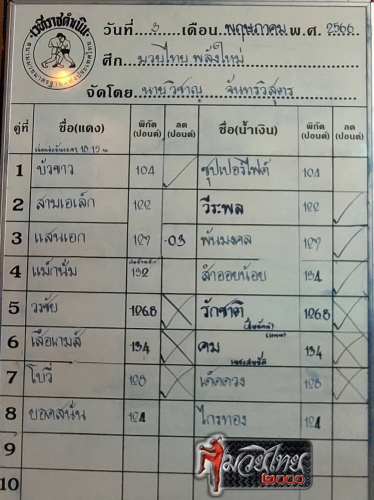 เวทีราชดำเนิน
วันที่ 3 เดือน พฤษภาคม พ.ศ. 2566
ศึก มวยไทย พลังใหม่
จัดโดย นายวิชาญ จันทรวิสูตร
คู่ที่ ชื่อ(แดง) พิกัด(ปอนด์) ลด(ปอนด์) ชื่อ(น้ำเงิน) พิกัด(ปอนด์) ลด(ปอนด์)
1 บัวขาว 104 ซุปเปอร์ไฟต์ 104
2 สามเอเล็ก 122 วีระพล 122
3 แสนเอก 127 -0.3 พันมงคล 127
4 แม็กนั่ม 132 สำออยน้อย 134
5 วรชัย 126.8 รักชาติ 126.8
6 เสือเกมส์ 134 คม 134
7 โบวี่ 128 เด็ดดวง 128
8 ยอดสนั่น 124 ไกรทอง 124
9
10
มวยไทย
2000